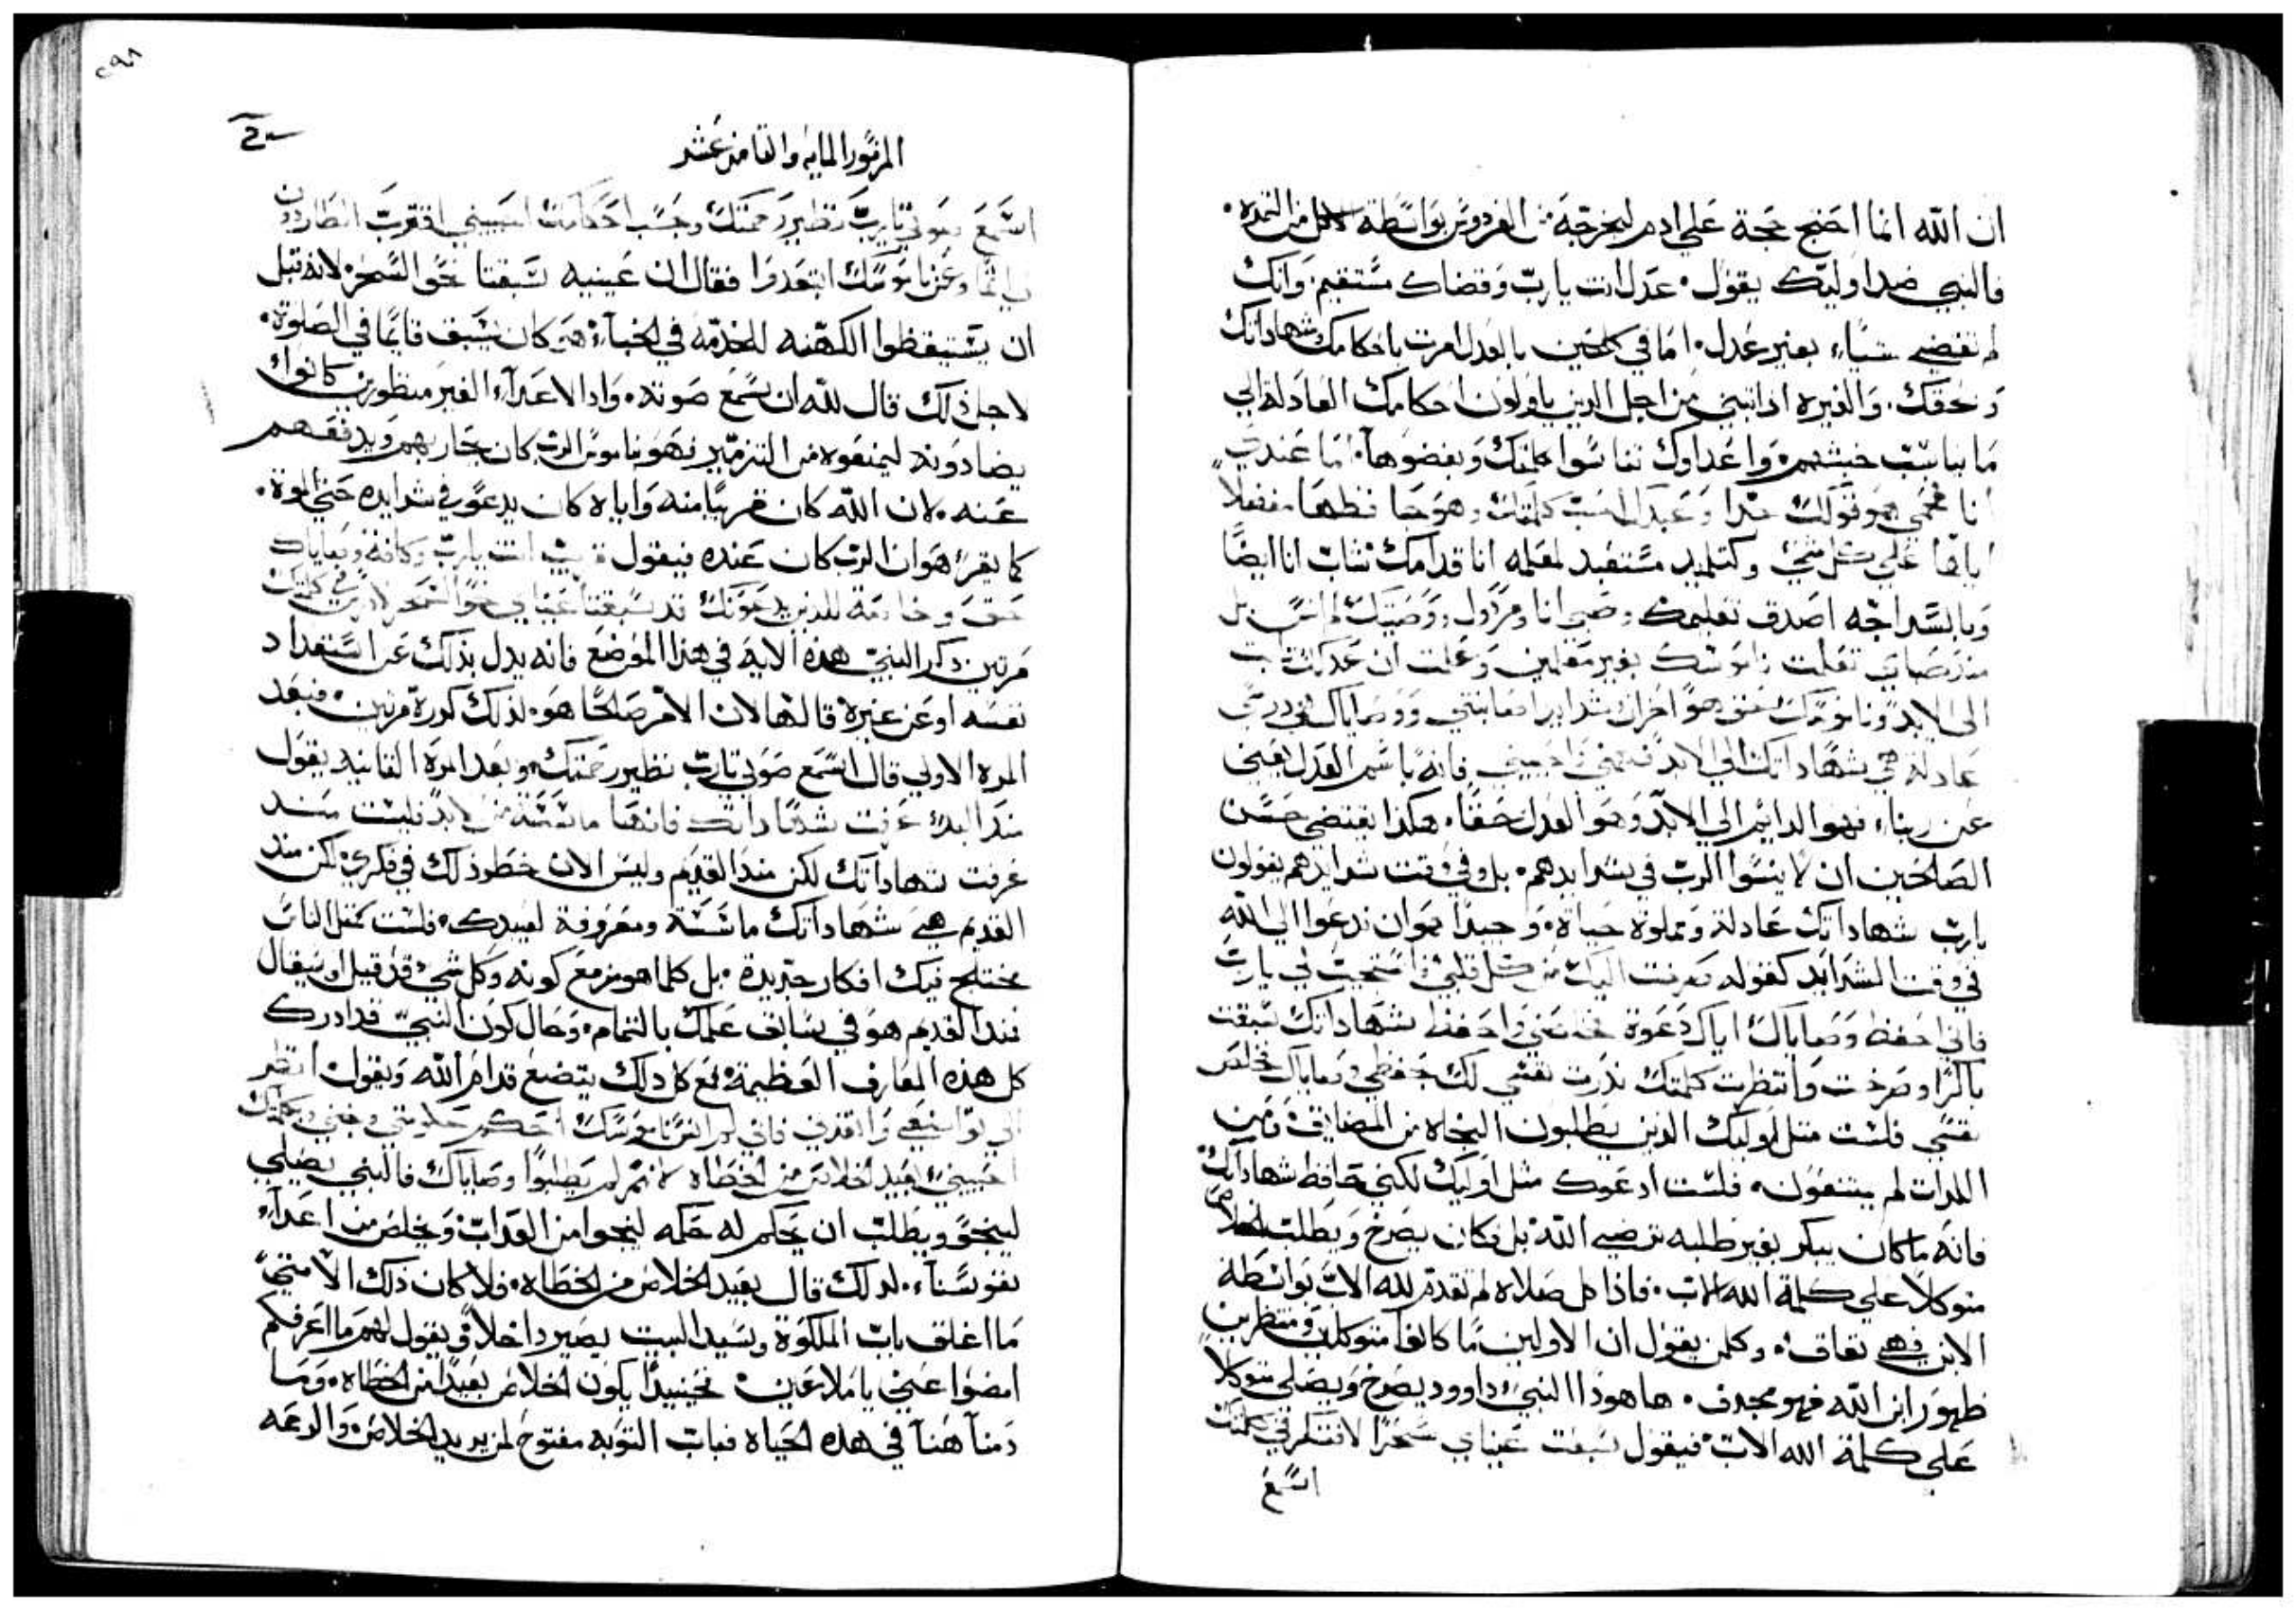 ان الله انما احتج بحجة علي ادم ليخرجه من الفردوس بواسطة الاكل من الثمره.
فالنبي ضد اوليك يقول. عدل انت يارب وقضاك مستقيم. وانك
لم تقضي شياء بغير عدل. اما في كلحين بالعدل امرت باحكامك شهاداتك
وبحقك. والغيره اذابتني من اجل الذين ياولون احكامك العادلة الي
ما يناسب خبثهم. واعداوك تناسوا كلمتك وبغضوها. اما عندي
انا فمحمي هو قولك جدا وعبدك احب كلمتك وهو حافظها مفضلاً
اياها علي كل شي وكتلميد مستفيد لمعلمه انا قدامك شاب انا ايضا
وبالسداجه اصدق تعليمك وصبي انا ومردول ووصيتك لم انس بل
منذ صباي تعلمت ناموسك بغير معلمين وعلمت ان عدلك ثابت
الي الابد وناموسك حق هو احزان وشدايد اصابتني ووصاياك هي درسي
عادلة هي شهاداتك الي الابد فهمني فاحييني فانه باسم العدل يعني
عن ربنا. فهو الدايم الي الابد وهو العدل حقا. هكذا يقتضي حسن
الصالحين ان لا ينسوا الرب في شدايدهم. بل وفي وقت شدايدهم يقولون
يارب شهاداتك عادلة ومملوة حياة. وجيدا هو ان ندعوا الي الله
في وقت الشدايد كقوله صرخت اليك من كل قلبي فاستجيب لي يارب
فاني احفظ وصاياك اياك دعوة فخلصني واحفظ شهاداتك سبقت
باكرا وصرخت وانتظرت كلمتك نذرت نفسي لك بحفظي وصاياك تخلص
نفسي فلست مثل اوليك الذين يطلبون النجاه من المضايق ومن
المدات لم يبتغون. فلست ادعوك مثل اوليك لكني حافظ شهاداتك
فانه ما كان يبكر بغير طلبه ترضي الله بل وكان يصرخ ويطلب الخلاص
متوكلا علي كلمة الله الاب. فاذا كل صلاه لم تقدم لله الاب بواسطة
الابن فهي تعاف. وكلمن يقول ان الاولين ما كانوا متوكلين ومنتظرين
ظهور ابن الله فهو مجدف. ها هوذا النبي داوود يصرخ ويصلي متوكلا
علي كلمة الله الاب فيقول سبقت عيناي سحرا لاتفكر في كلمتك
اسمع
٢٩٨
المزمور المايه والثامن عشر
اسمع صوتي يارب نظير رحمتك وحسب احكامك احييني اقترب الطاردون
لي اثما وعن ناموسك ابتعدوا فقال ان عينيه سبقتا نحو السحر. لانه قبل
ان يستيقظوا الكهنه للخدمه في الخباء هو كان يسبق قايما في الصلوة.
لاجل ذلك قال لله ان يسمع صوته. واذ الاعداء الغير منظورين كانوا
يضادونه ليمنعوه من التزمير فهو ناموس الرب كان يحاربهم ويدفعهم
عنه. لان الله كان قريبا منه واياه كان يدعو في شدايده حتي الموة.
كما يقرء هو ان الرب كان عنده فيقول قريب انت يارب وكافة وصاياك
حق وخاصة للذين يدعونك قد سبقتا عيناي نحو السحر لادرس في كلمتك
مرتين ذكر النبي هذه الاية في هذا الموضع فانه يدل بذلك عن استعداد
نفسه او عن غيره قالها لان الامر صالحا هو. لذلك كوره مرتين. فبعد
المره الاولي قال اسمع صوتي يارب نظير رحمتك. وبعد المرة الثانيه يقول
منذ البدء عرفت شهاداتك فانها ماسسة من الابد فليست منذ
عرفت شهاداتك لكن منذ القديم وليس الان خطر ذلك في فكري لكن منذ
القديم هي شهاداتك ماسسة ومعروفة لعبيدك. فلست كمثل الناس
يختلج فيك افكار جديدة. بل كلما هو مزمع كونه وكل شي قد قيل او سيقال
منذ القديم هو في سابق علمك بالتمام. وحال كون النبي قد ادرك
كل هذه المعارف العظيمة مع كل ذلك يتضع قدام الله ويقول انظر
الي تواضعي وانقذني فاني لم انس ناموسك احكم حكومتي ونجني وبكلمتك
احييني. بعيد الخلاص من الخطاه لانهم لم يطلبوا وصاياك فالنبي يصلي
لينجو ويطلب ان يحكم له حكمه لينجوا من العداب ويخلص من اعداء
نفوسنا. لذلك قال بعيد الخلاص من الخطاه. فلا كان ذلك الا متي
ما اغلق باب الملكوة وسيد البيت يصير داخلا ويقول لهم ما اعرفكم
امضوا عني يا ملاعين. فحينيذا يكون الخلاص بعيدا من الخطاه. وما
دمنا هنا في هذه الحياه فباب التوبه مفتوح لمن يريد الخلاص والرحمه